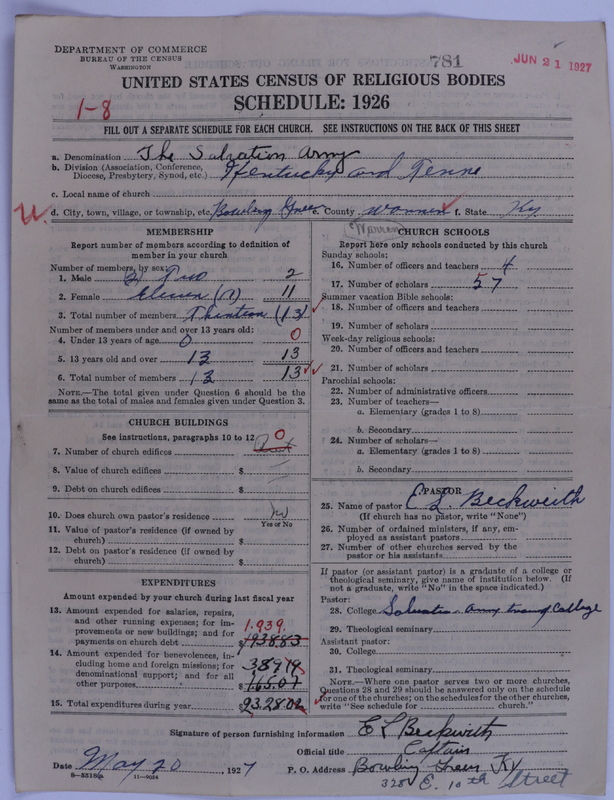 DEPARTMENT OF COMMERCE
BUREAU OF THE CENSUS
WASHINGTON
781
JUN 21 1927
UNITED STATES CENSUS OF RELIGIOUS BODIES
SCHEDULE: 1926
1-8
FILL OUT A SEPARATE SCHEDULE FOR EACH CHURCH. SEE INSTRUCTIONS ON THE BACK OF THIS SHEET
a. Denomination The Salvation Army
b. Division (Association, Conference, Diocese, Presbytery, Synod, etc.) Kentucky and Tenne
c. Local name of church
d. City, town, village, or township, etc. Bowling Green e. County Warren f. State Ky
(Warren)
MEMBERSHIP
Report number of members according to definition of
member in your church
Number of members, by sex:
1. Male (2) Two 2
2. Female Eleven (11) 11
3. Total number of members Thirteen (13)
Number of members under and over 13 years old:
4. Under 13 years of age 0 0
5. 13 years old and over 13 13
6. Total number of members 13 13
NOTE.—The total given under Question 6 should be
same as the total of males and females given under Question 3.
CHURCH BUILDINGS
See instructions, paragraphs 10 to 12
7. Number of church edifices 0
8. Value of church edifices $
9. Debt on church edifices $
10. Does church own pastor's residence
Yes or No
11. Value of pastor's residence (if owned by
church) $
12. Debt on pastor's residence (if owned by
church) $
EXPENDITURES
Amount expended by your church during last fiscal year
13. Amount expended for salaries, repairs,
and other running expenses; for im-
provements or new buildings; and for
payments on church debt $ 1.939.
193883
14. Amount expended for benevolences, in-
cluding home and foreign missions; for
denominational support; and for all
other purposes $
38919
15. Total expenditures during year $ 232802
CHURCH SCHOOLS
Report here only schools conducted by this church
Sunday schools:
16. Number of officers and teachers 4
17. Number of scholars 57
Summer vacation Bible schools:
18. Number of officers and teachers
19. Number of scholars
Week-day religious schools:
20. Number of officers and teachers
21. Number of scholars
Parochial schools:
22. Number of administrative officers
23. Number of teachers—
a. Elementary (grades 1 to 8)
b. Secondary
24. Number of scholars—
a. Elementary (grades 1 to 8)
b. Secondary
PASTOR
25. Name of pastor E L Beckwith
(If church has no pastor, write "None")
26. Number of ordained ministers, if any, em-
ployed as assistant pastors
27. Number of other churches served by the
pastor or his assistants
If pastor (or assistant pastor) is a graduate of a college or
theological seminary, give name of institution below. (If
not a graduate, write "No" in the space indicated.)
Pastor:
28. College Salvation Army College
29. Theological seminary
Assistant pastor:
30. College
31. Theological seminary
NOTE.—Where one pastor serves two or more churches,
Questions 28 and 29 should be answered only on the schedule
for one of the churches; on the schedules for the other churches,
write "See schedule for church."
Signature of person furnishing information E L Beckwith
Official title Captain
Date May 20, 1927 P. O. Address Bowling Green Ky
328 E. 10th Street
8-5318a 11-9054